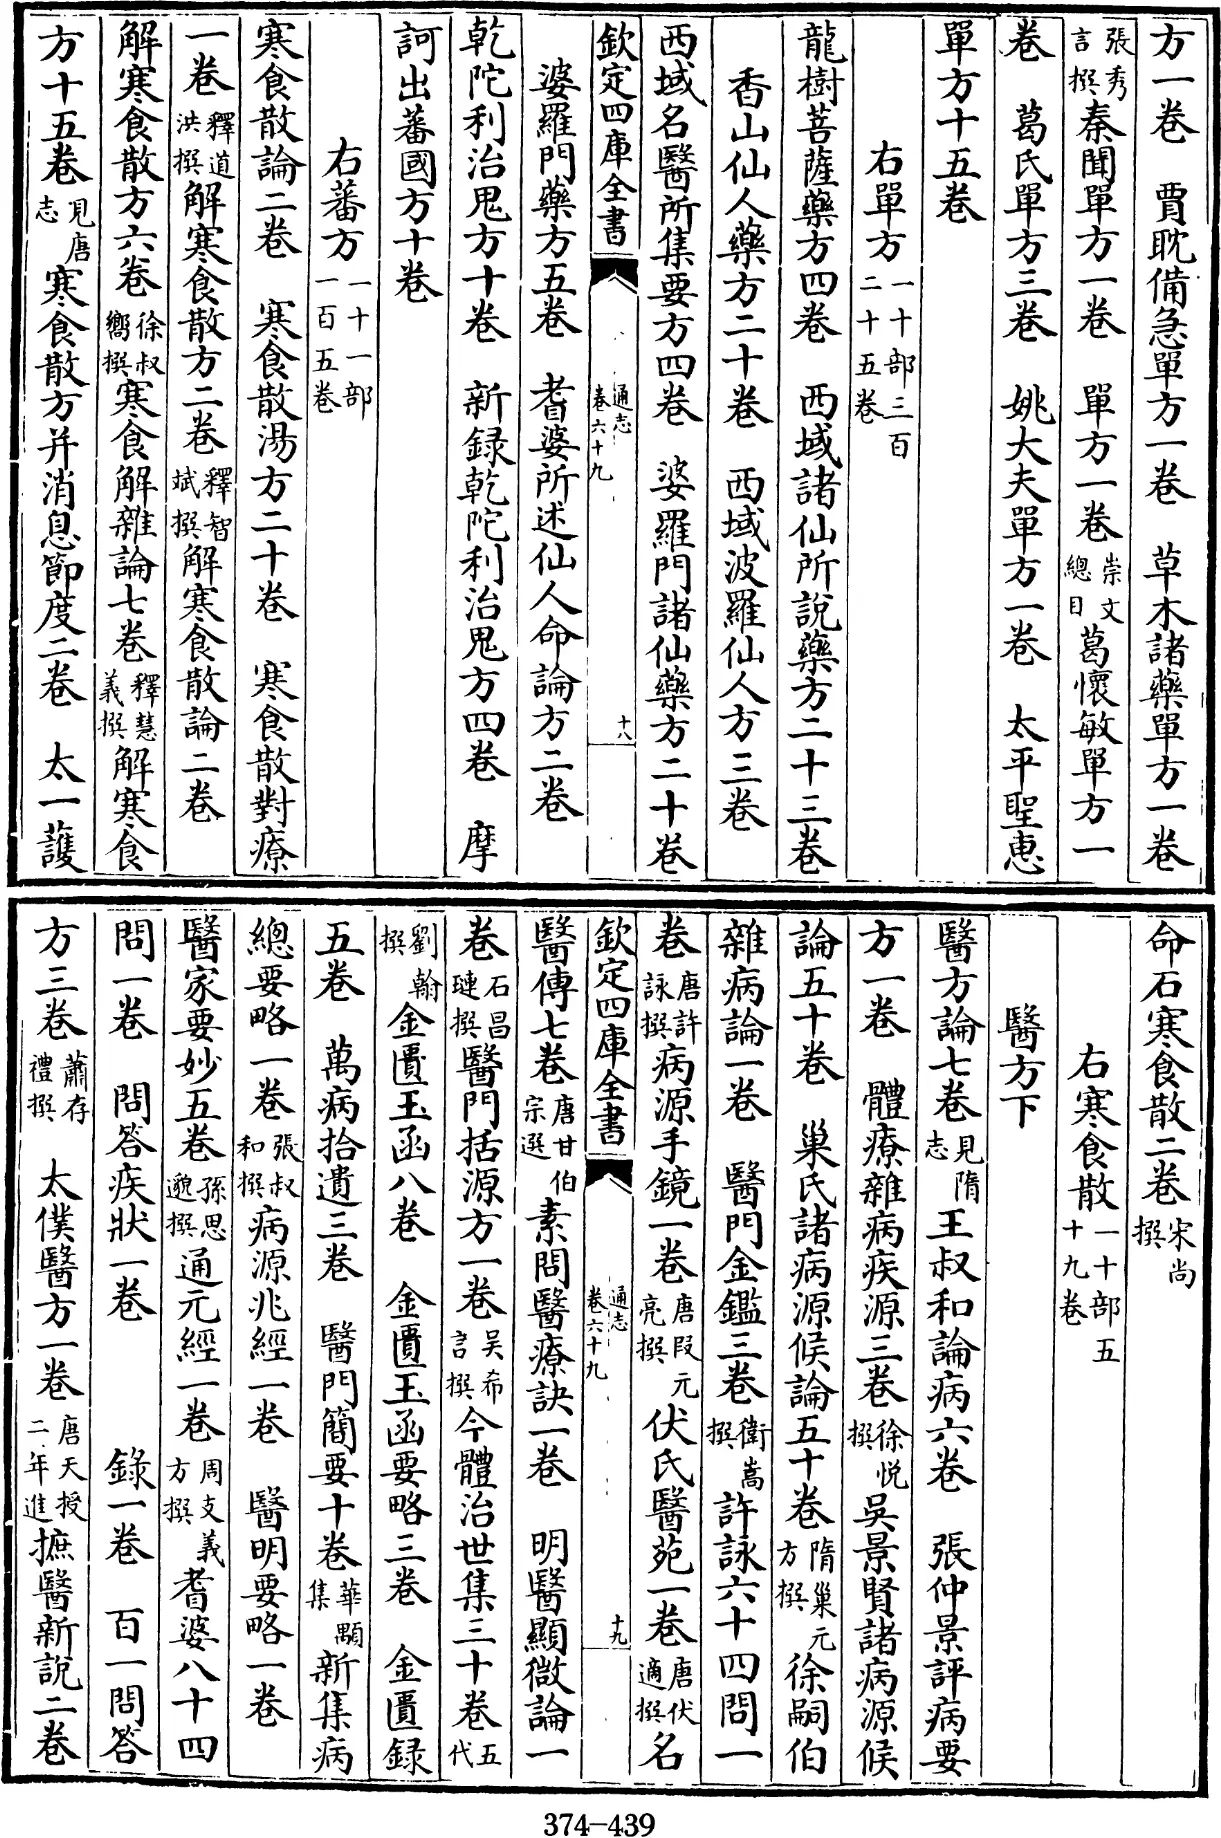 方一卷　賈耽備急單方一卷　草木諸藥單方一卷
張秀言撰秦聞單方一卷　單方一卷崇文總目葛懷敏單方一
卷　葛氏單方三卷　姚大夫單方一卷　太平聖惠
單方十五卷
右單方一十部三百二十五卷
龍樹菩薩藥方四卷　西域諸仙所說藥方二十三卷
香山仙人藥方二十卷　西域波羅仙人方三卷
西域名醫所集要方四卷　婆羅門諸仙藥方二十卷
欽定四庫全書　通志卷六十九　十八
婆羅門藥方五卷　耆婆所述仙人命論方二卷
乾陀利治鬼方十卷　新録乾陀利治鬼方四卷　摩
訶出蕃國方十卷
右蕃方一十一部一百五卷
寒食散論二卷　寒食散湯方二十卷　寒食散對療
一卷釋道洪撰解寒食散方二卷釋智斌撰解寒食散論二卷
解寒食散方六卷徐叔嚮撰寒食解雜論七卷釋慧義撰解寒食
方十五卷見唐志寒食散方并消息節度二卷　太一護
命石寒食散二卷宋尚撰
右寒食散一十部五十九卷
醫方下
醫方論七卷見隋志王叔和論病六卷　張仲景評病要
方一卷　體療雜病疾源三卷徐悅撰吳景賢諸病源候
論五十卷　巢氏諸病源候論五十卷隋巢元方撰徐嗣伯
雜病論一卷　醫門金鑑三卷衛嵩撰許詠六十四問一
卷唐許詠撰病源手鏡一卷唐段元亮撰伏氏醫苑一卷唐伏適撰名
欽定四庫全書　通志卷六十九　十九
醫傳七卷唐甘伯宗選素問醫療訣一卷　明醫顯微論一
卷石昌璉撰醫門括源方一卷吳希言撰今體治世集三十卷五代
劉翰撰金匱玉函八卷　金匱玉函要略三卷　金匱録
五卷　萬病拾遺三卷　醫門簡要十卷華顒集新集病
總要略一卷張叔和撰病源兆經一卷　醫明要略一卷
醫家要妙五卷孫思邈撰通元經一卷周支義方撰耆婆八十四
問一卷　問答疾狀一卷　錄一卷　百一問答
方三卷蕭存禮撰　太僕醫方一卷唐天授二年進摭醫新説二卷
374-439